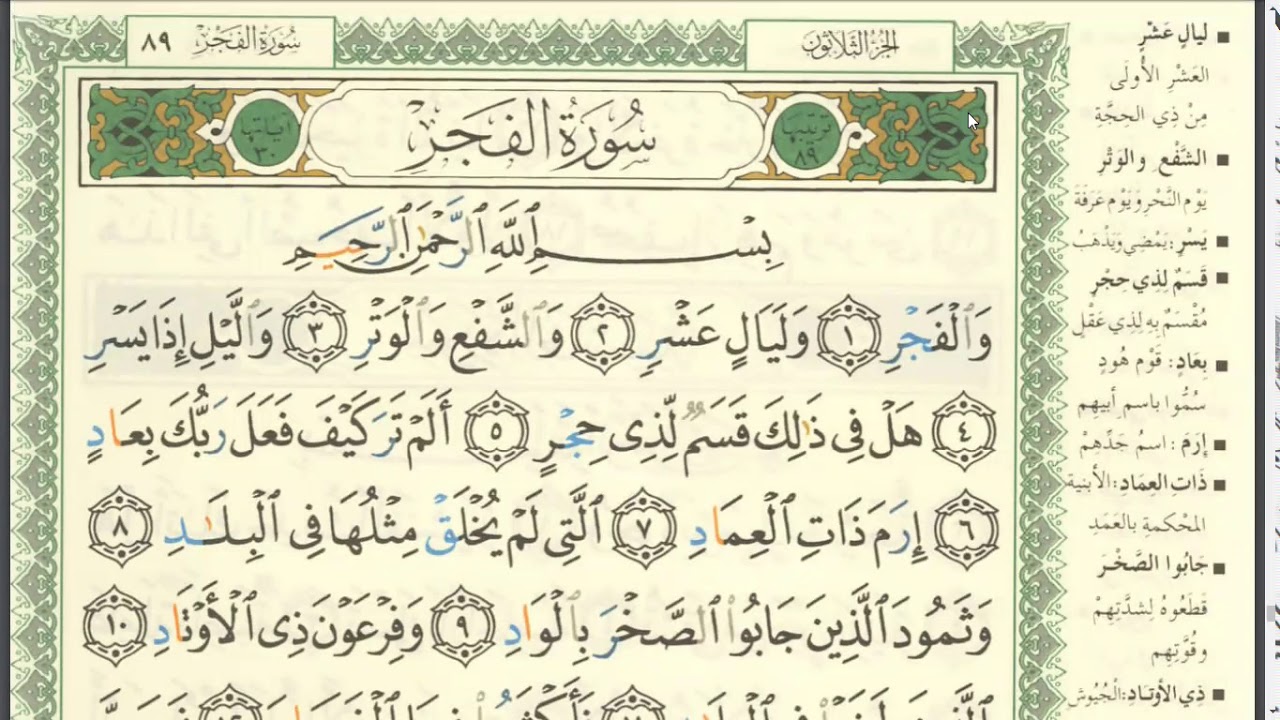 سُورَةُ الفَجْرِ ٨٩
الجُزْءُ الثَّلَاثُونَ
سُورَةُ الفَجْرِ
ترتيبها ٨٩
آياتها ٣٠
بِسْمِ ٱللَّهِ ٱلرَّحْمَٰنِ ٱلرَّحِيمِ
وَٱلْفَجْرِ ١ وَلَيَالٍ عَشْرٍ ٢ وَٱلشَّفْعِ وَٱلْوَتْرِ ٣ وَٱلَّيْلِ إِذَا يَسْرِ
٤ هَلْ فِى ذَٰلِكَ قَسَمٌ لِّذِى حِجْرٍ ٥ أَلَمْ تَرَ كَيْفَ فَعَلَ رَبُّكَ بِعَادٍ
٦ إِرَمَ ذَاتِ ٱلْعِمَادِ ٧ ٱلَّتِى لَمْ يُخْلَقْ مِثْلُهَا فِى ٱلْبِلَٰدِ ٨
وَثَمُودَ ٱلَّذِينَ جَابُوا۟ ٱلصَّخْرَ بِٱلْوَادِ ٩ وَفِرْعَوْنَ ذِى ٱلْأَوْتَادِ ١٠
لَيالٍ عَشْرٍ
العَشْرِ الأُولَى
مِنْ ذِي الحِجَّةِ
الشَّفْعِ والوَتْرِ
يَوْمِ النَّحْرِ وَيَوْمِ عَرَفَةَ
يَسْرِ: يَمْضِي وَيَذْهَبُ
قَسَمٌ لِذِي حِجْرٍ
مُقْسَمٌ بِهِ لِذِي عَقْلٍ
بِعَادٍ: قَوْمِ هُودٍ
سُمُّوا باسمِ أبيهِم
إِرَمَ: اسمُ جَدِّهِمْ
ذَاتِ العِمَادِ: الأبنيةِ
المُحْكَمةِ بالعَمَدِ
جَابُوا الصَّخْرَ
قَطَعُوهُ لِشِدَّتِهِمْ
وقُوَّتِهِم
ذِي الأوتَادِ: الجُيُوشِ